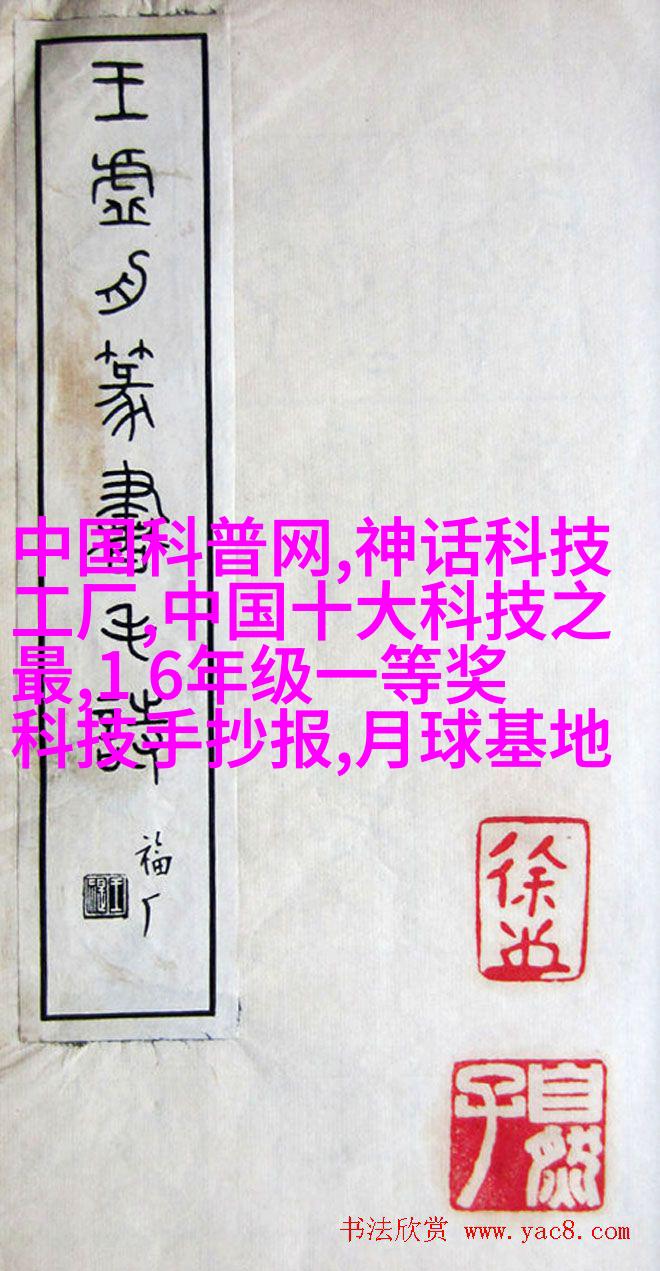 王虛舟篆書毛詩
福厂
中国科普网,神话科技
工厂,中国十大科技之
最,1 6年级一等奖
科技手抄报,月球基地
自然子
书法欣赏 www.yac8.com